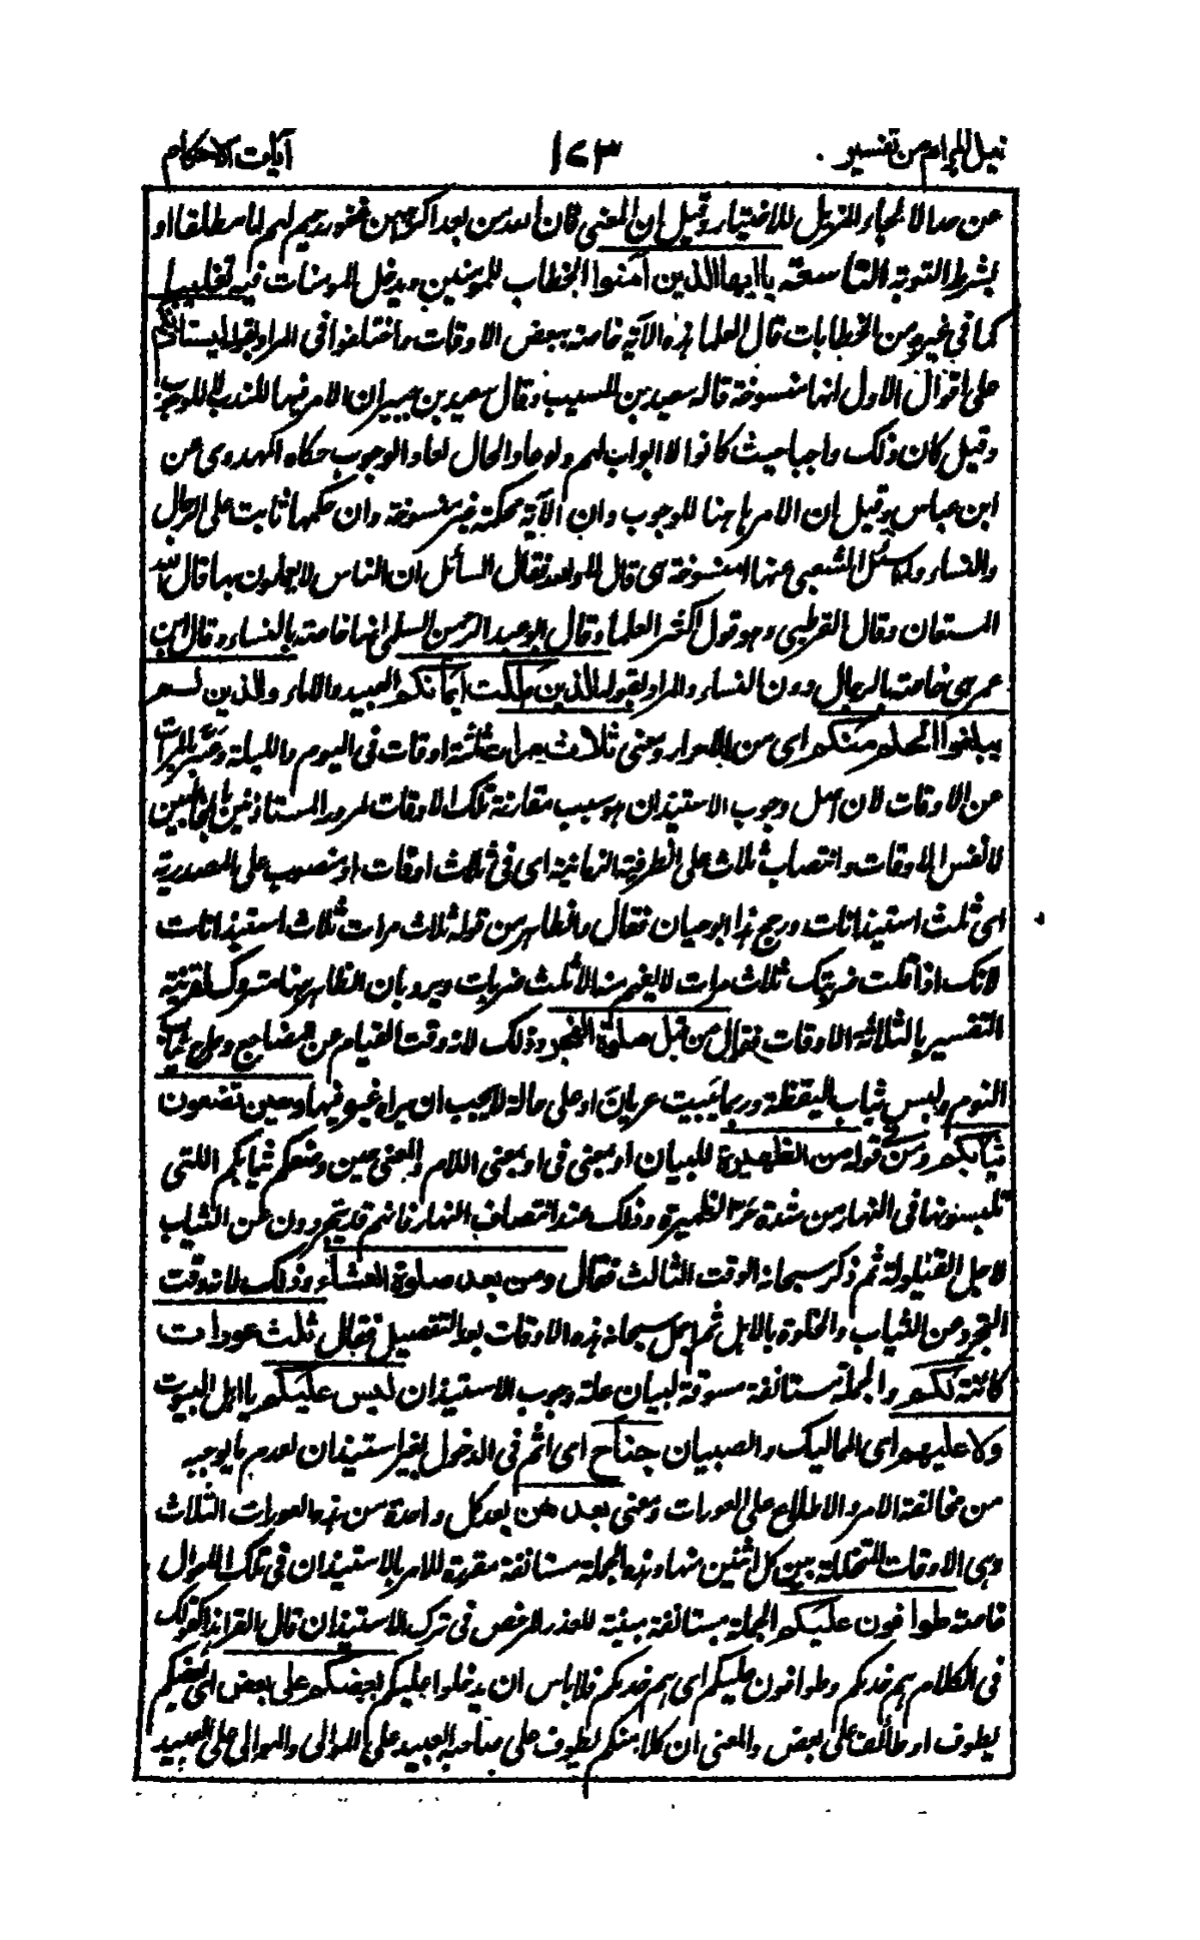 نيل المرام من تفسير ١٧٣ آيات الاحكام
عن حد الالجاء المزيل للاختيار وقيل ان المعنى فان الله من بعد اكراههن غفور رحيم لهم اما مطلقا او
بشرط التوبة التاسعة ياايها الذين آمنوا الخطاب للمومنين ويدخل المومنات فيه تغليبا
كما في غيره من الخطابات قال العلما هذه الآية خاصة ببعض الاوقات واختلفوا في المراد بقوله ليستاذنكم
على اقوال الاول انها منسوخة قاله سعيد بن المسيب وقال سعيد بن جبير ان الامر فيها للندب لا للوجوب
وقيل كان ذلك واجبا حيث كانوا لا ابواب لهم ولو عاد الحال لعاد الوجوب حكاه المهدوى عن
ابن عباس وقيل ان الامر هاهنا للوجوب وان الآية محكمة غير منسوخة وان حكمها ثابت على الرجال
والنساء ولما سئل الشعبى عنها امنسوخة هى قال لا والله فقال السائل ان الناس لا يعملون بها قال الله
المستعان وقال القرطبى وهو قول اكثر العلما وقال ابو عبد الرحمن السلمى انها خاصة بالنساء وقال ابن
عمر هى خاصة بالرجال دون النساء والمراد بقوله الذين ملكت ايمانكم العبيد والاماء والذين لم
يبلغوا الحلم منكم اى من الاحرار ومعنى ثلاث مرات ثلثة اوقات فى اليوم والليلة وعبر بالمرات
عن الاوقات لان اصل وجوب الاستيذان هو بسبب مقارنة تلك الاوقات لمرور المستاذنين بالمخاطبين
لا نفس الاوقات وانتصاب ثلاث على الظرفية الزمانية اى فى ثلاث اوقات او منصوب على المصدرية
اى ثلث استيذانات ورجح هذا ابو حيان فقال والظاهر من قوله ثلاث مرات ثلاث استيذانات
لانك اذا قلت ضربتك ثلاث مرات لا يفهم منه الا ثلث ضربات ويرد بان الظاهر هنا متروك لقرينة
التفسير بالثلاثة الاوقات فقال من قبل صلوة الفجر وذلك لانه وقت القيام عن المضاجع وطرح ثياب
النوم ولبس ثياب اليقظة وربما يبيت عريانا او على حالة لا يحب ان يراه غيره فيها وحين تضعون
ثيابكم ومن قوله من الظهيرة للبيان او بمعنى فى او بمعنى اللام والمعنى حين وضعكم ثيابكم اللتى
تلبسونها فى النهار من شدة حر الظهيرة وذلك عند انتصاف النهار فانهم قد يتجردون عن الثياب
لاجل القيلولة ثم ذكر سبحانه الوقت الثالث فقال ومن بعد صلوة العشاء وذلك لانه وقت
التجرد عن الثياب والخلوة بالاهل ثم اجمل سبحانه هذه الاوقات بعد التفصيل فقال ثلث عورات
كائنة لكم والجملة مستانفة مسوقة لبيان علة وجوب الاستيذان ليس عليكم يا اهل البيوت
ولا عليهم اى المماليك والصبيان جناح اى اثم فى الدخول بغير استيذان لعدم ما يوجبه
من مخالفة الامر والاطلاع على العورات ومعنى بعد هن بعد كل واحدة من هذه العورات الثلاث
وهى الاوقات المتخللة بين كل اثنين منها وهذه الجملة مستانفة مقررة للامر بالاستيذان فى تلك الاحوال
خاصة طوافون عليكم الجملة مستانفة مبينة للعذر المرخص فى ترك الاستيذان قال الفراء هذا كقولك
فى الكلام هم خدمكم وطوافون عليكم اى هم خدمكم فلا باس ان يدخلوا عليكم بعضكم على بعض اى بعضكم
يطوف او طائف على بعض والمعنى ان كلا منكم يطوف على صاحبه العبيد على الموالى والموالى على العبيد